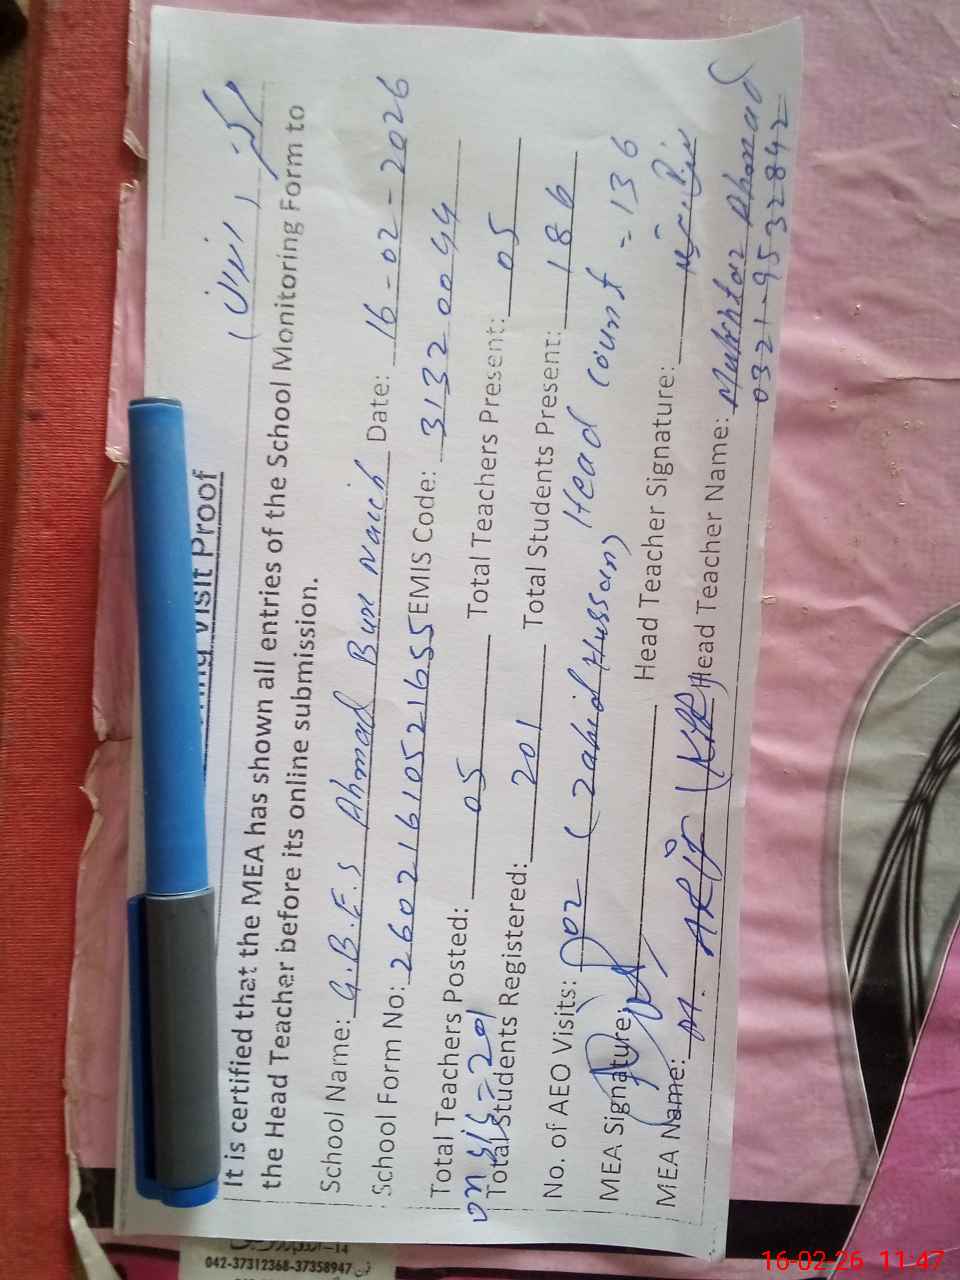 Visit Proof
It is certified that the MEA has shown all entries of the School Monitoring Form to
the Head Teacher before its online submission.
School Name: G.B.E.S Ahmad Bux Naich Date: 16-02-2026
School Form No: 26021610521655 EMIS Code: 31320044
Total Teachers Posted: 05 Total Teachers Present: 05
on sis = 201
Total Students Registered: 201 Total Students Present: 186
No. of AEO Visits: 02 (Zahid Hussain) Head count = 136
MEA Signature: Head Teacher Signature:
MEA Name: M. ARIF Head Teacher Name: Mukhtar Ahmad
0321-9532842
042-37312368-37358947
16-02-26 11:47